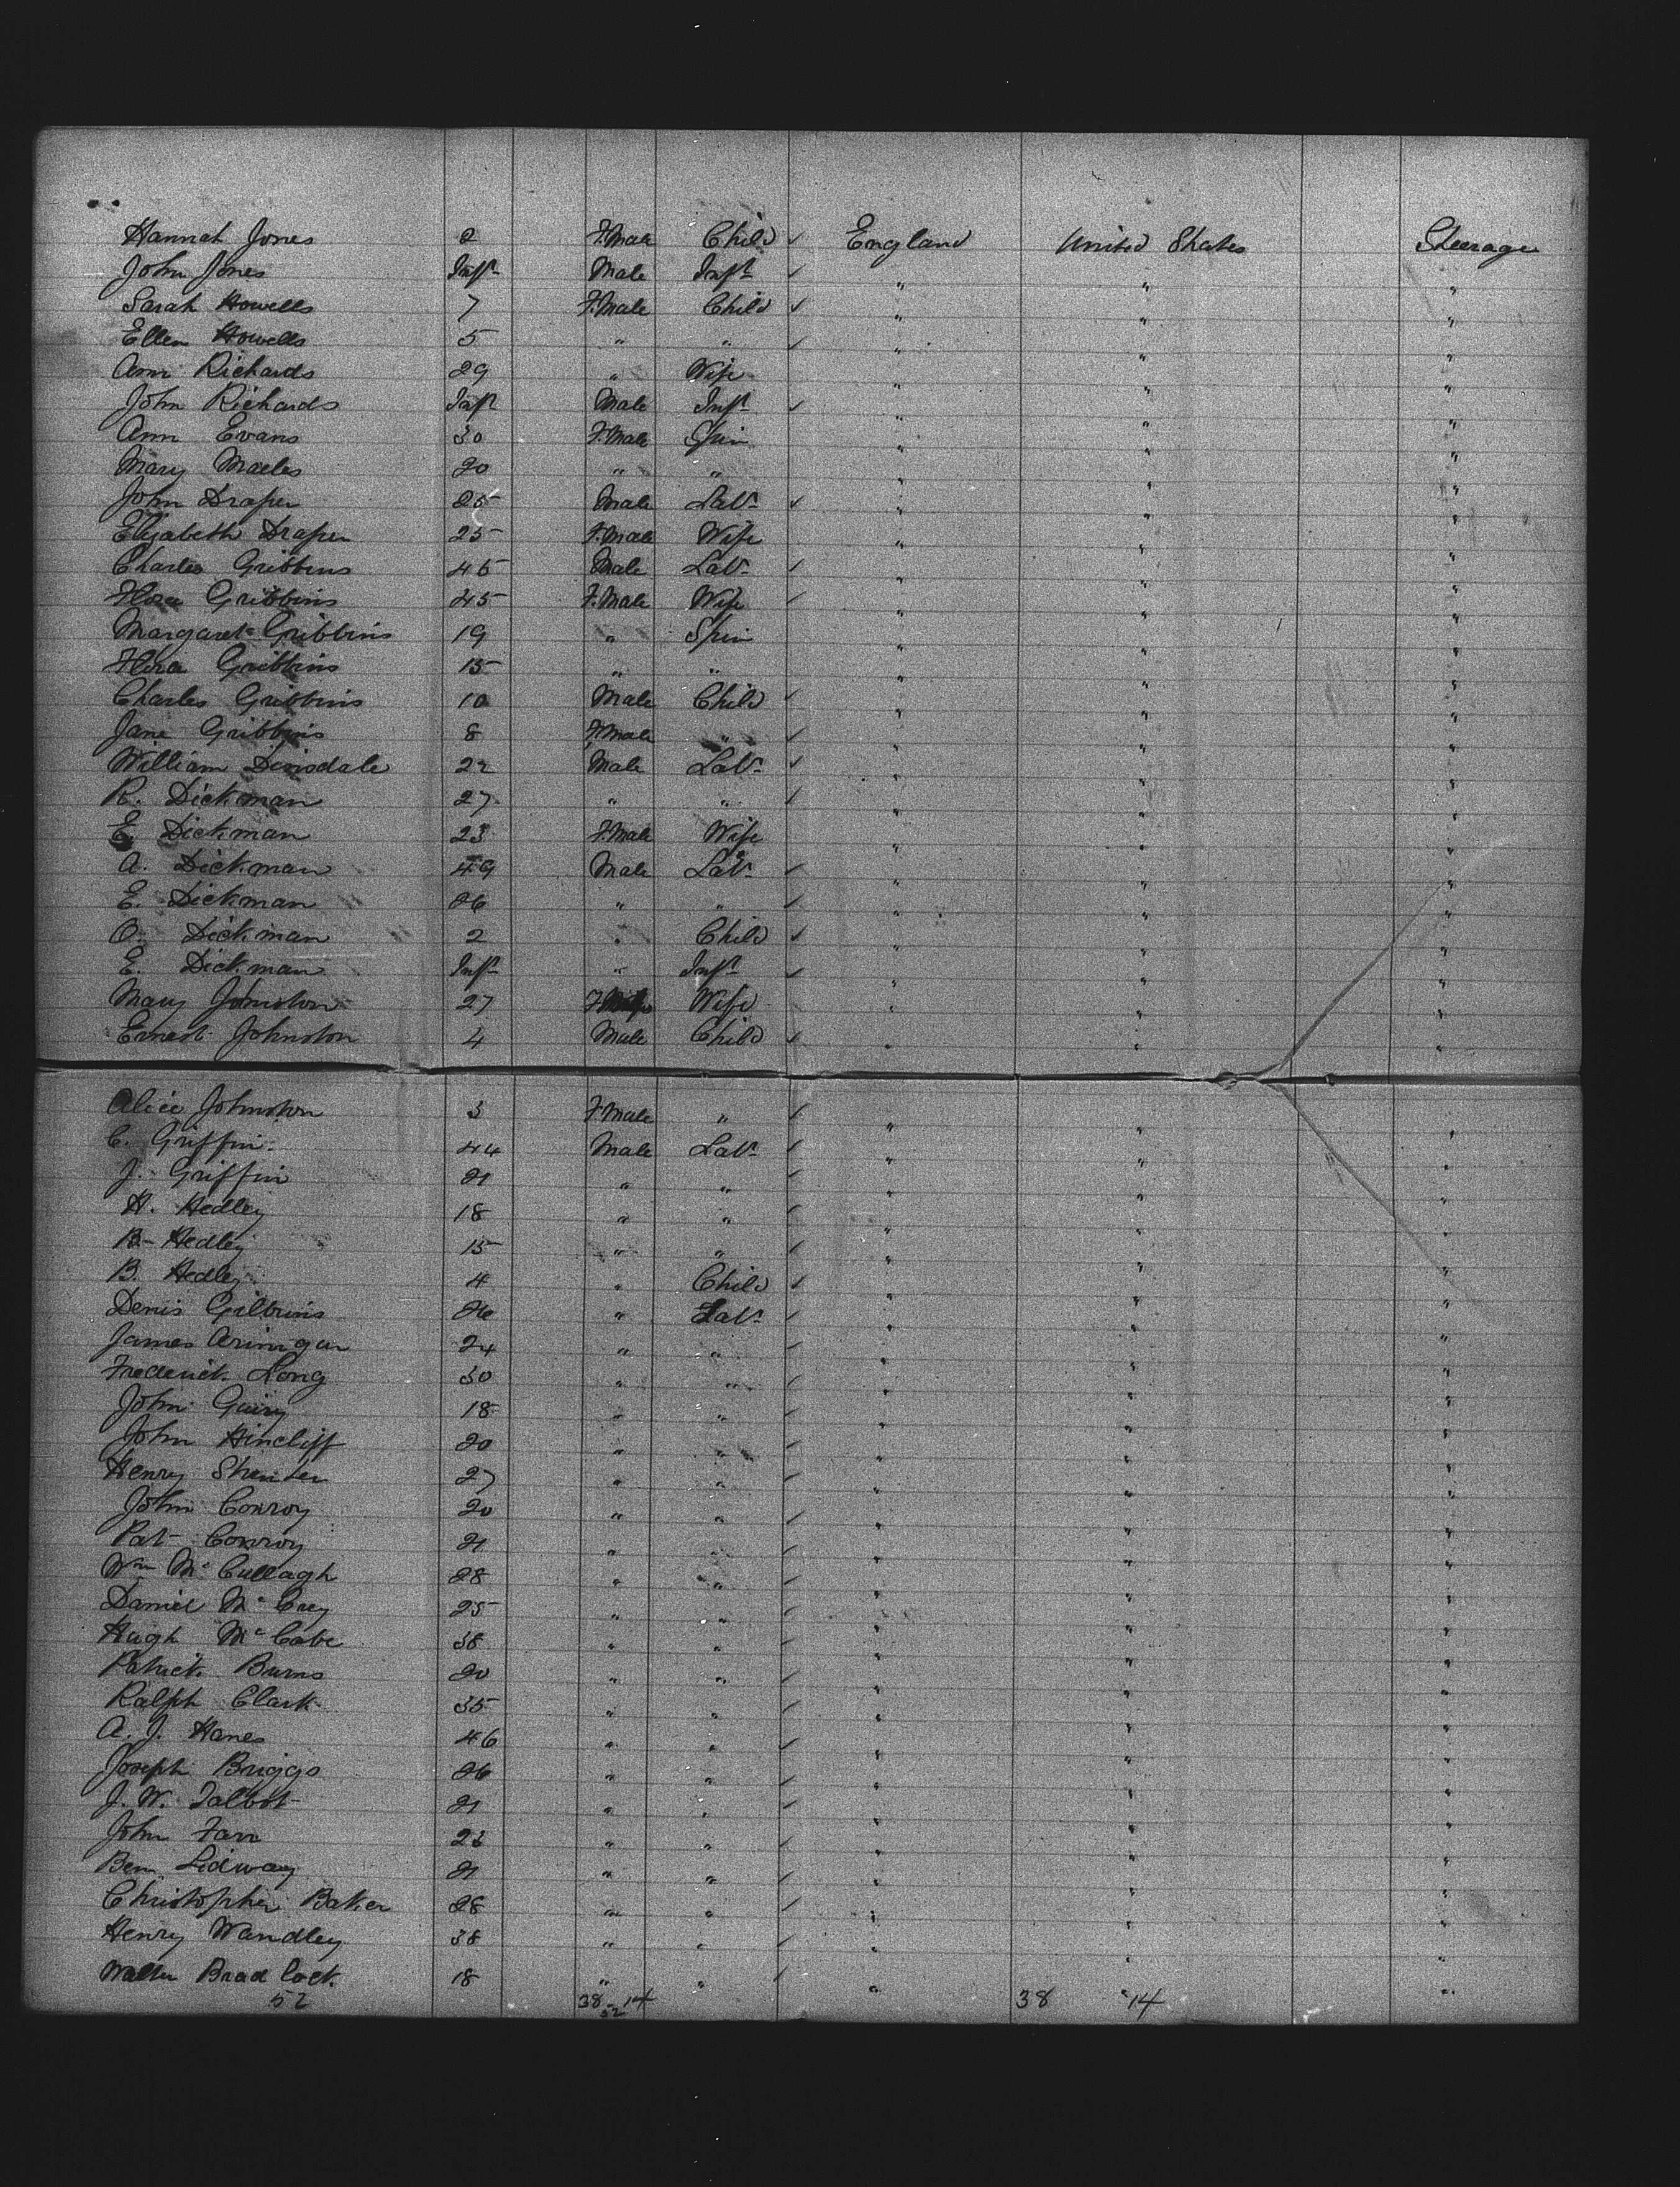 Hannah Jones 2 F.Male Child ✓ England United States Steerage
John Jones Inft Male Inft ✓ " " "
Sarah Howells 7 F.Male Child ✓ " " "
Ellen Howells 5 " " ✓ " " "
Ann Richards 29 " Wife " " "
John Richards Inft Male Inft ✓ " " "
Ann Evans 30 F.Male Spin " " "
Mary 20 " " " " "
John Draper 25 Male Labr ✓ " " "
Elizabeth Draper 25 F.Male Wife " " "
Charles Gribbins 45 Male Labr ✓ " " "
Flora Gribbins 45 F.Male Wife ✓ " " "
Margaret Gribbins 19 " Spin " " "
Flora Gribbins 15 " " " " "
Charles Gribbins 10 Male Child ✓ " " "
Jane Gribbins 8 F.Male " ✓ " " "
William Dinsdale 22 Male Labr ✓ " " "
R. Dickman 27 " " ✓ " " "
E. Dickman 23 F.Male Wife " " "
A. Dickman 49 Male Labr ✓ " " "
E. Dickman 26 " " ✓ " " "
O. Dickman 2 " Child ✓ " " "
E. Dickman Inft " Inft ✓ " " "
Mary Johnston 27 F.Male Wife " " "
Ernest Johnston 4 Male Child ✓ " " "
Alice Johnston 3 F.Male " ✓ " " "
C. Griffin 44 Male Labr ✓ " " "
J. Griffin 21 " " ✓ " " "
H. Hedley 18 " " ✓ " " "
B. Hedley 15 " " ✓ " " "
B. Hedley 4 " Child ✓ " " "
Denis Gilbins 26 " Labr ✓ " " "
James 24 " " ✓ " " "
Frederick Long 30 " " ✓ " " "
John 18 " " ✓ " " "
John Hincliff 20 " " ✓ " " "
Henry 27 " " ✓ " " "
John Conroy 20 " " ✓ " " "
Pat Conroy 21 " " ✓ " " "
Wm McCullagh 28 " " ✓ " " "
Daniel McCrey 25 " " ✓ " " "
Hugh McCabe 38 " " ✓ " " "
Patrick Burns 20 " " ✓ " " "
Ralph Clark 35 " " ✓ " " "
A. J. Hanes 46 " " ✓ " " "
Joseph Briggs 26 " " ✓ " " "
J. W. Talbot 21 " " ✓ " " "
John Farr 23 " " ✓ " " "
Ben Lidway 21 " " ✓ " " "
Christopher Baker 28 " " ✓ " " "
Henry Wandley 38 " " ✓ " " "
Walter Bradlock 18 " " ✓ " " "
52 38 - 14 38 14
52